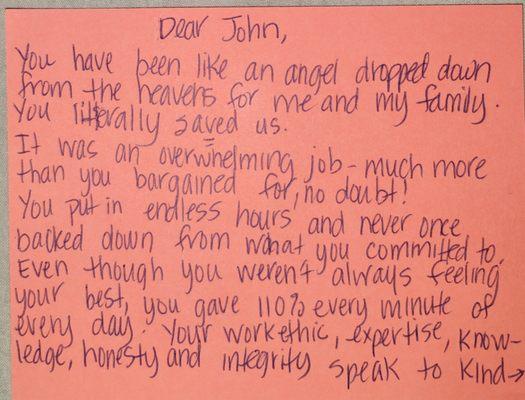 Dear John,
You have been like an angel dropped down
from the heavens for me and my family.
You literally saved us.
It was an overwhelming job - much more
than you bargained for, no doubt!
You put in endless hours and never once
backed down from what you committed to.
Even though you weren't always feeling
your best, you gave 110% every minute of
every day. Your work ethic, expertise, know-
ledge, honesty and integrity speak to kind→